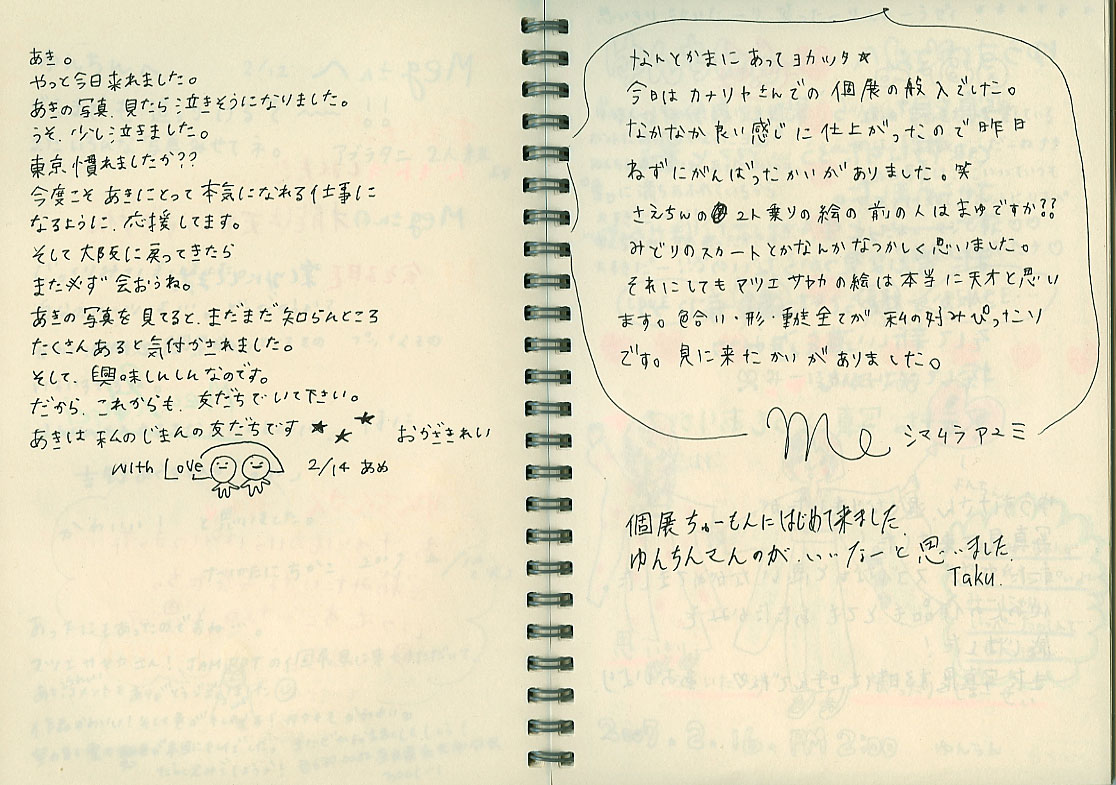 あき。
やっと今日来れました。
あきの写真、見たら泣きそうになりました。
うそ、少し泣きました。
東京、慣れましたか??
今度こそ あきにとって 本気になれる仕事に
なるように、応援してます。
そして 大阪に戻ってきたら
また必ず 会おうね。
あきの写真を見てると、まだまだ知らんところ
たくさんあると気付かされました。
そして、興味しんしんなのです。
だから、これからも、友だちでいて下さい。
あきは 私のじまんの友だちです ★★★ おかざきれい
with Love 2/14 あめ
なんとかまにあってヨカッタ★
今日は カナリヤさんでの 個展の搬入でした。
なかなか良い感じに仕上がったので昨日
ねずにがんばったかいがありました。笑
さえちんの 2人乗りの絵の前の人はまゆですか??
みどりのスカートとかなんかなつかしく思いました。
それにしてもマツエ サヤカの絵は本当に天才と思い
ます。色合い・形・動き全てが 私の好みぴったり
です。見に来たかいがありました。
Me シマムラアユミ
個展ちゅーもんにはじめて来ました
ゆんちんさんのが、いいなーと思いました
Taku.